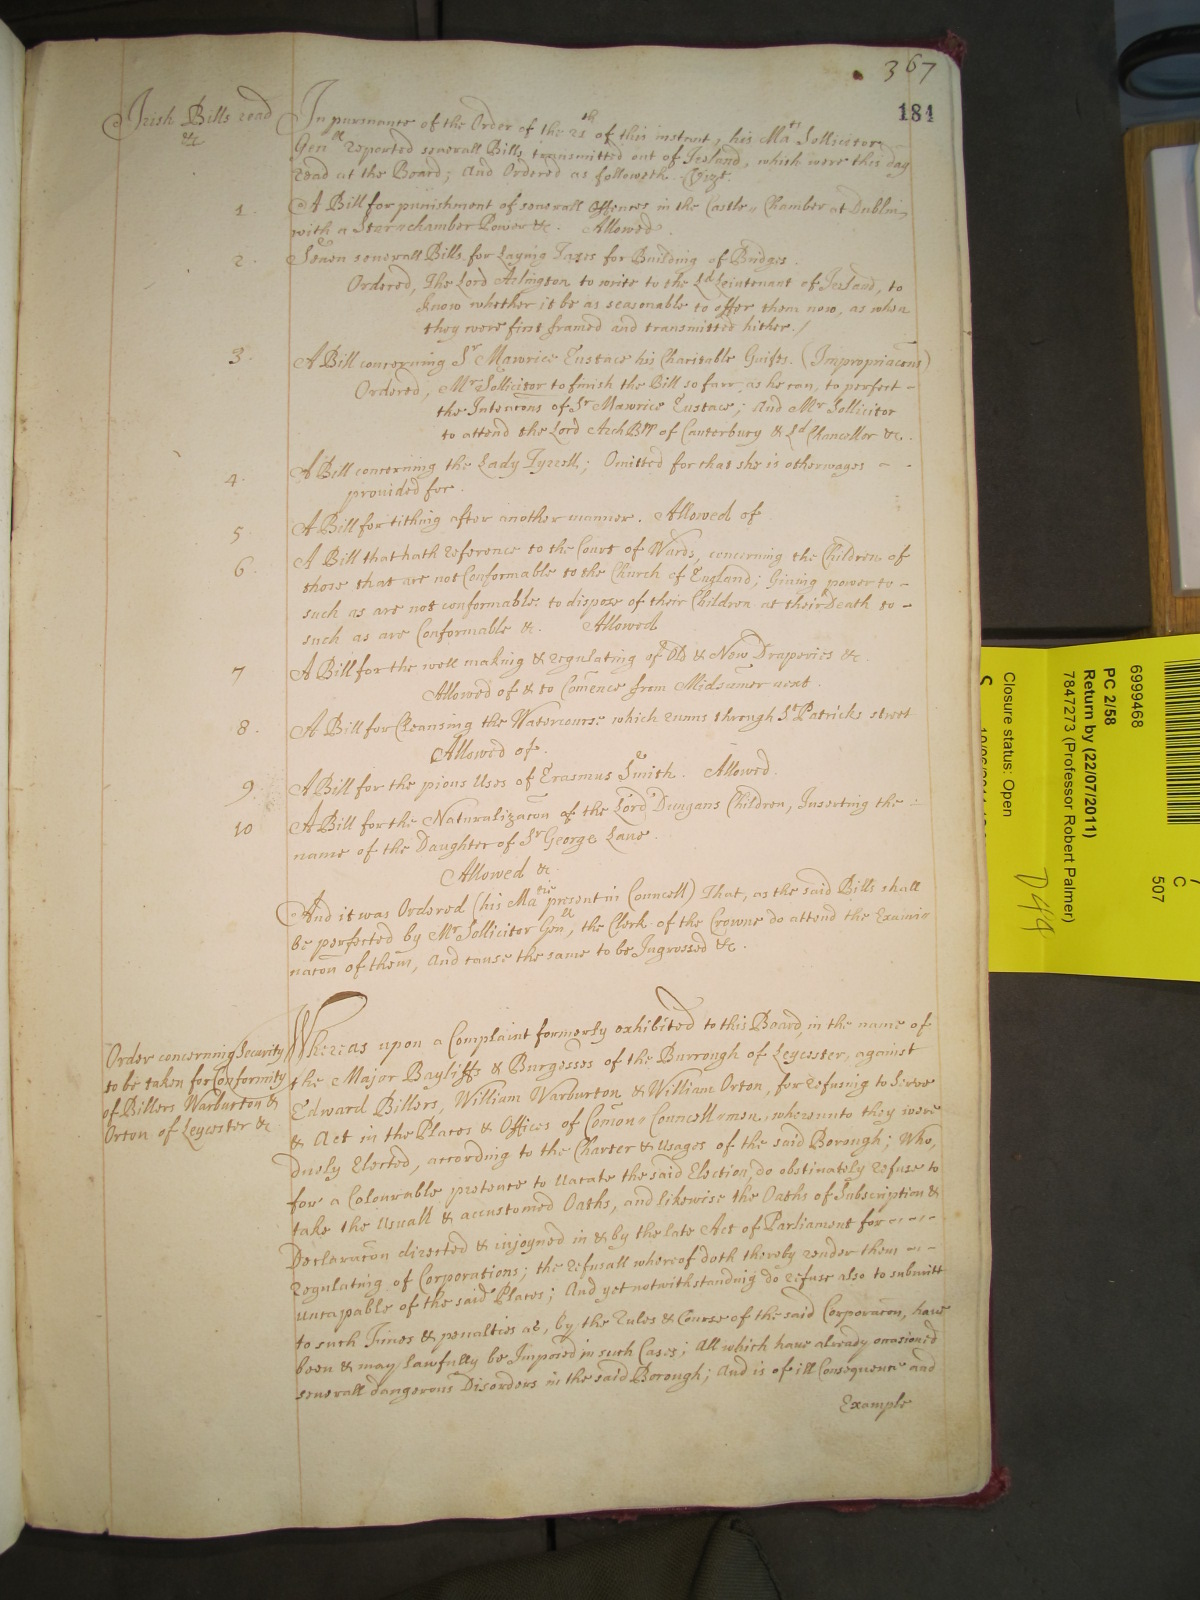 367
184
Irish Bills read
&c
In pursuance of the Order of the 21th of this instant, his Mats Sollicitor
Genll reported severall Bills transmitted out of Ireland, which were this day
read at the Board; And Ordered as followeth. Vizt.
1. A Bill for punishment of severall Offences in the Castle-Chamber at Dublin,
with a Starrchamber Power &c. Allowed.
2. Seaven severall Bills for Laying Taxes for Building of Bridges.
Ordered, The Lord Arlington to write to the Ld Leiutenant of Ireland, to
know whether it be as seasonable to offer them now, as when
they were first framed and transmitted hither./
3. A Bill concerning Sr Mawrice Eustace his Charitable Guifts. (Impropriacons)
Ordered, Mr Sollicitor to finish the Bill so farr, as he can, to perfect -
the Intencons of Sr Mawrice Eustace; And Mr Sollicitor
to attend the Lord ArchBpp of Canterbury & Ld Chancellor &c.
4. A Bill concerning the Lady Tyrrell; Omitted for that she is otherwayes - -
provided for.
5 A Bill for tithing after another manner. Allowed of
6. A Bill that hath reference to the Court of Wards, concerning the Children of
those that are not Conformable to the Church of England; Giving power to -
such as are not conformable to dispose of their Children at their Death to -
such as are Conformable &c. Allowed
7 A Bill for the well making & regulating of Old & New Draperies &c.
Allowed of & to Comence from Midsumer next.
8. A Bill for Cleansing the Watercourse which runns through St Patricks street
Allowed of.
9. A Bill for the pious Uses of Erasmus Smith. Allowed.
10 A Bill for the Naturalizacon of the Lord Dungans Children, Inserting the :
name of the Daughter of Sr George Lane.
Allowed &c.
And it was Ordered (his Matie present in Councell) That, as the said Bills shall
be perfected by Mr Sollicitor Genll, the Clerk of the Crowne do attend the Exami=
nacon of them, and cause the same to be Ingrossed &c.
Order concerning Security
to be taken for Conformity
of Billers Warburton &
Orton of Leycester &c
Whereas upon a Complaint formerly exhibited to this Board, in the name of
the Major Bayliffs & Burgesses of the Burrough of Leycester, against
Edward Billers, William Warburton & William Orton, for refusing to Serve
& Act in the Places & Offices of Comon-Councell-men, whereunto they were
duely Elected, according to the Charter & Usages of the said Borough; Who,
for a Colourable pretence to Vacate the said Election, do obstinately refuse to
take the Usuall & accustomed Oaths, and likewise the Oaths of Subscription &
Declaracon directed & injoyned in & by the late Act of Parliament for - - - -
Regulating of Corporations; the refusall whereof doth thereby render them - -
uncapable of the said Places; And yet notwithstanding do refuse also to submitt
to such Fines & penalties as, by the Rules & Course of the said Corporacon, have
been & may lawfully be Imposed in such Cases; All which have already occasioned
severall dangerous Disorders in the said Borough; And is of ill Consequence and
Example
6999468
PC 2/58
Return by (22/07/2011)
7847273 (Professor Robert Palmer)
Closure status: Open
C
507
D44